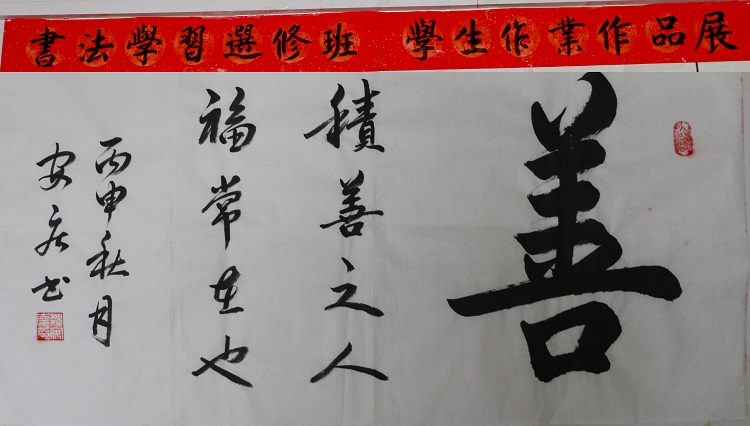 書法學習選修班 學生作業作品展
善
積善之人
福常在也
丙申秋月
安居书